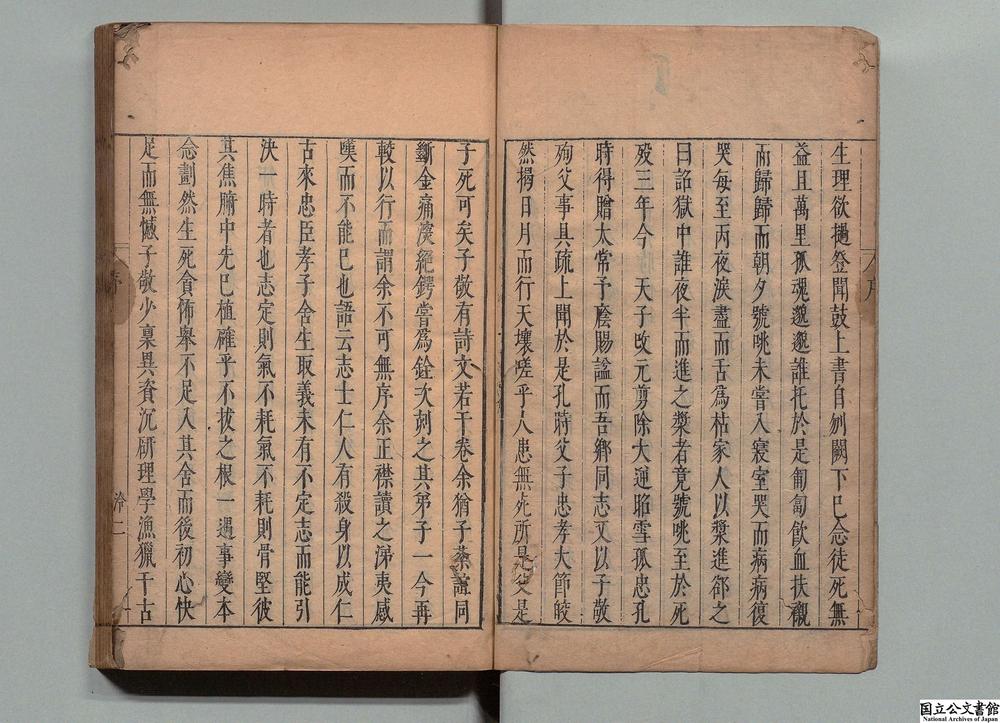 生理欲撾登聞鼓上書自刎闕下已念徒死無
益且萬里孤魂邈邈誰托於是匍匐飲血扶櫬
而歸歸而朝夕號咷未嘗入寢室哭而病病復
哭每至丙夜淚盡而舌為枯家人以漿進郤之
曰詔獄中誰夜半而進之漿者竟號咷至於死
歿三年今 天子改元剪除大逆昭雪孤忠孔
時得贈太常予廕賜諡而吾鄉同志又以子敬
殉父事具疏上聞於是孔時父子忠孝大節皎
然揭日月而行天壤嗟乎人患無死所是父是
子死可矣子敬有詩文若干卷余猶子荼誼同
斷金痛深絕鍔嘗為銓次刻之其弟子一今再
較以行而謂余不可無序余正襟讀之涕夷感
嘆而不能已也語云志士仁人有殺身以成仁
古來忠臣孝子舍生取義未有不定志而能引
決一時者也志定則氣不耗氣不耗則骨堅彼
其焦腑中先已植確乎不拔之根一遇事變本
念劃然生死貪怖舉不足入其舍而後初心快
足而無憾子敬少稟異資沉研理學漁獵千古
序
二
国立公文書館
National Archives of Japan